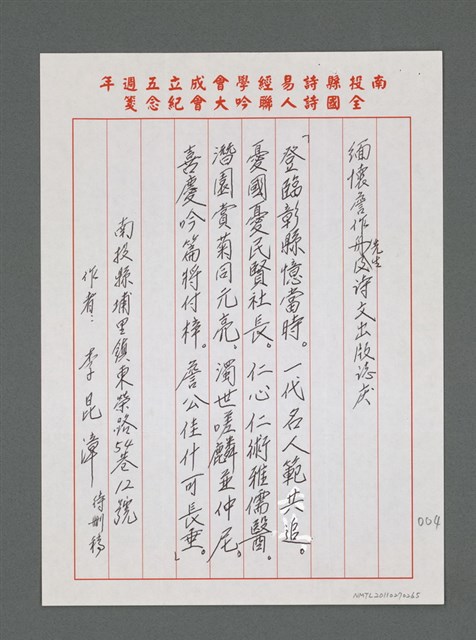 南投縣詩易經學會成立五週年
全國詩人聯吟大會紀念箋
緬懷詹作舟先生诗文出版誌庆
「登臨彰縣憶當時。一代名人範共追。
憂國憂民賢社長。仁心仁術雅儒醫。
潛園賞菊同元亮、濁世嗟麟並仲尼。
喜慶吟篇將付梓。詹公佳什可長垂。」
南投縣埔里鎮東榮路54巷12號
作者：李昆漳 待刪稿
004
NMTL20110270265